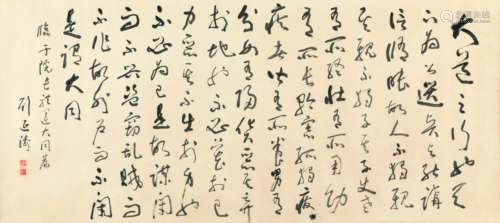 大道之行也天
下為公選賢與能講
信脩睦故人不獨親
其親不獨子其子使老
有所終壯有所用幼
有所長矜寡孤獨廢
疾者皆有所養男有
分女有歸貨惡其棄
於地也不必藏於己
力惡其不出於身也
不必為己是故謀閉
而不興盜竊亂賊而
不作故外戶而不閉
是謂大同
臨于院長禮運大同篇
劉延濤